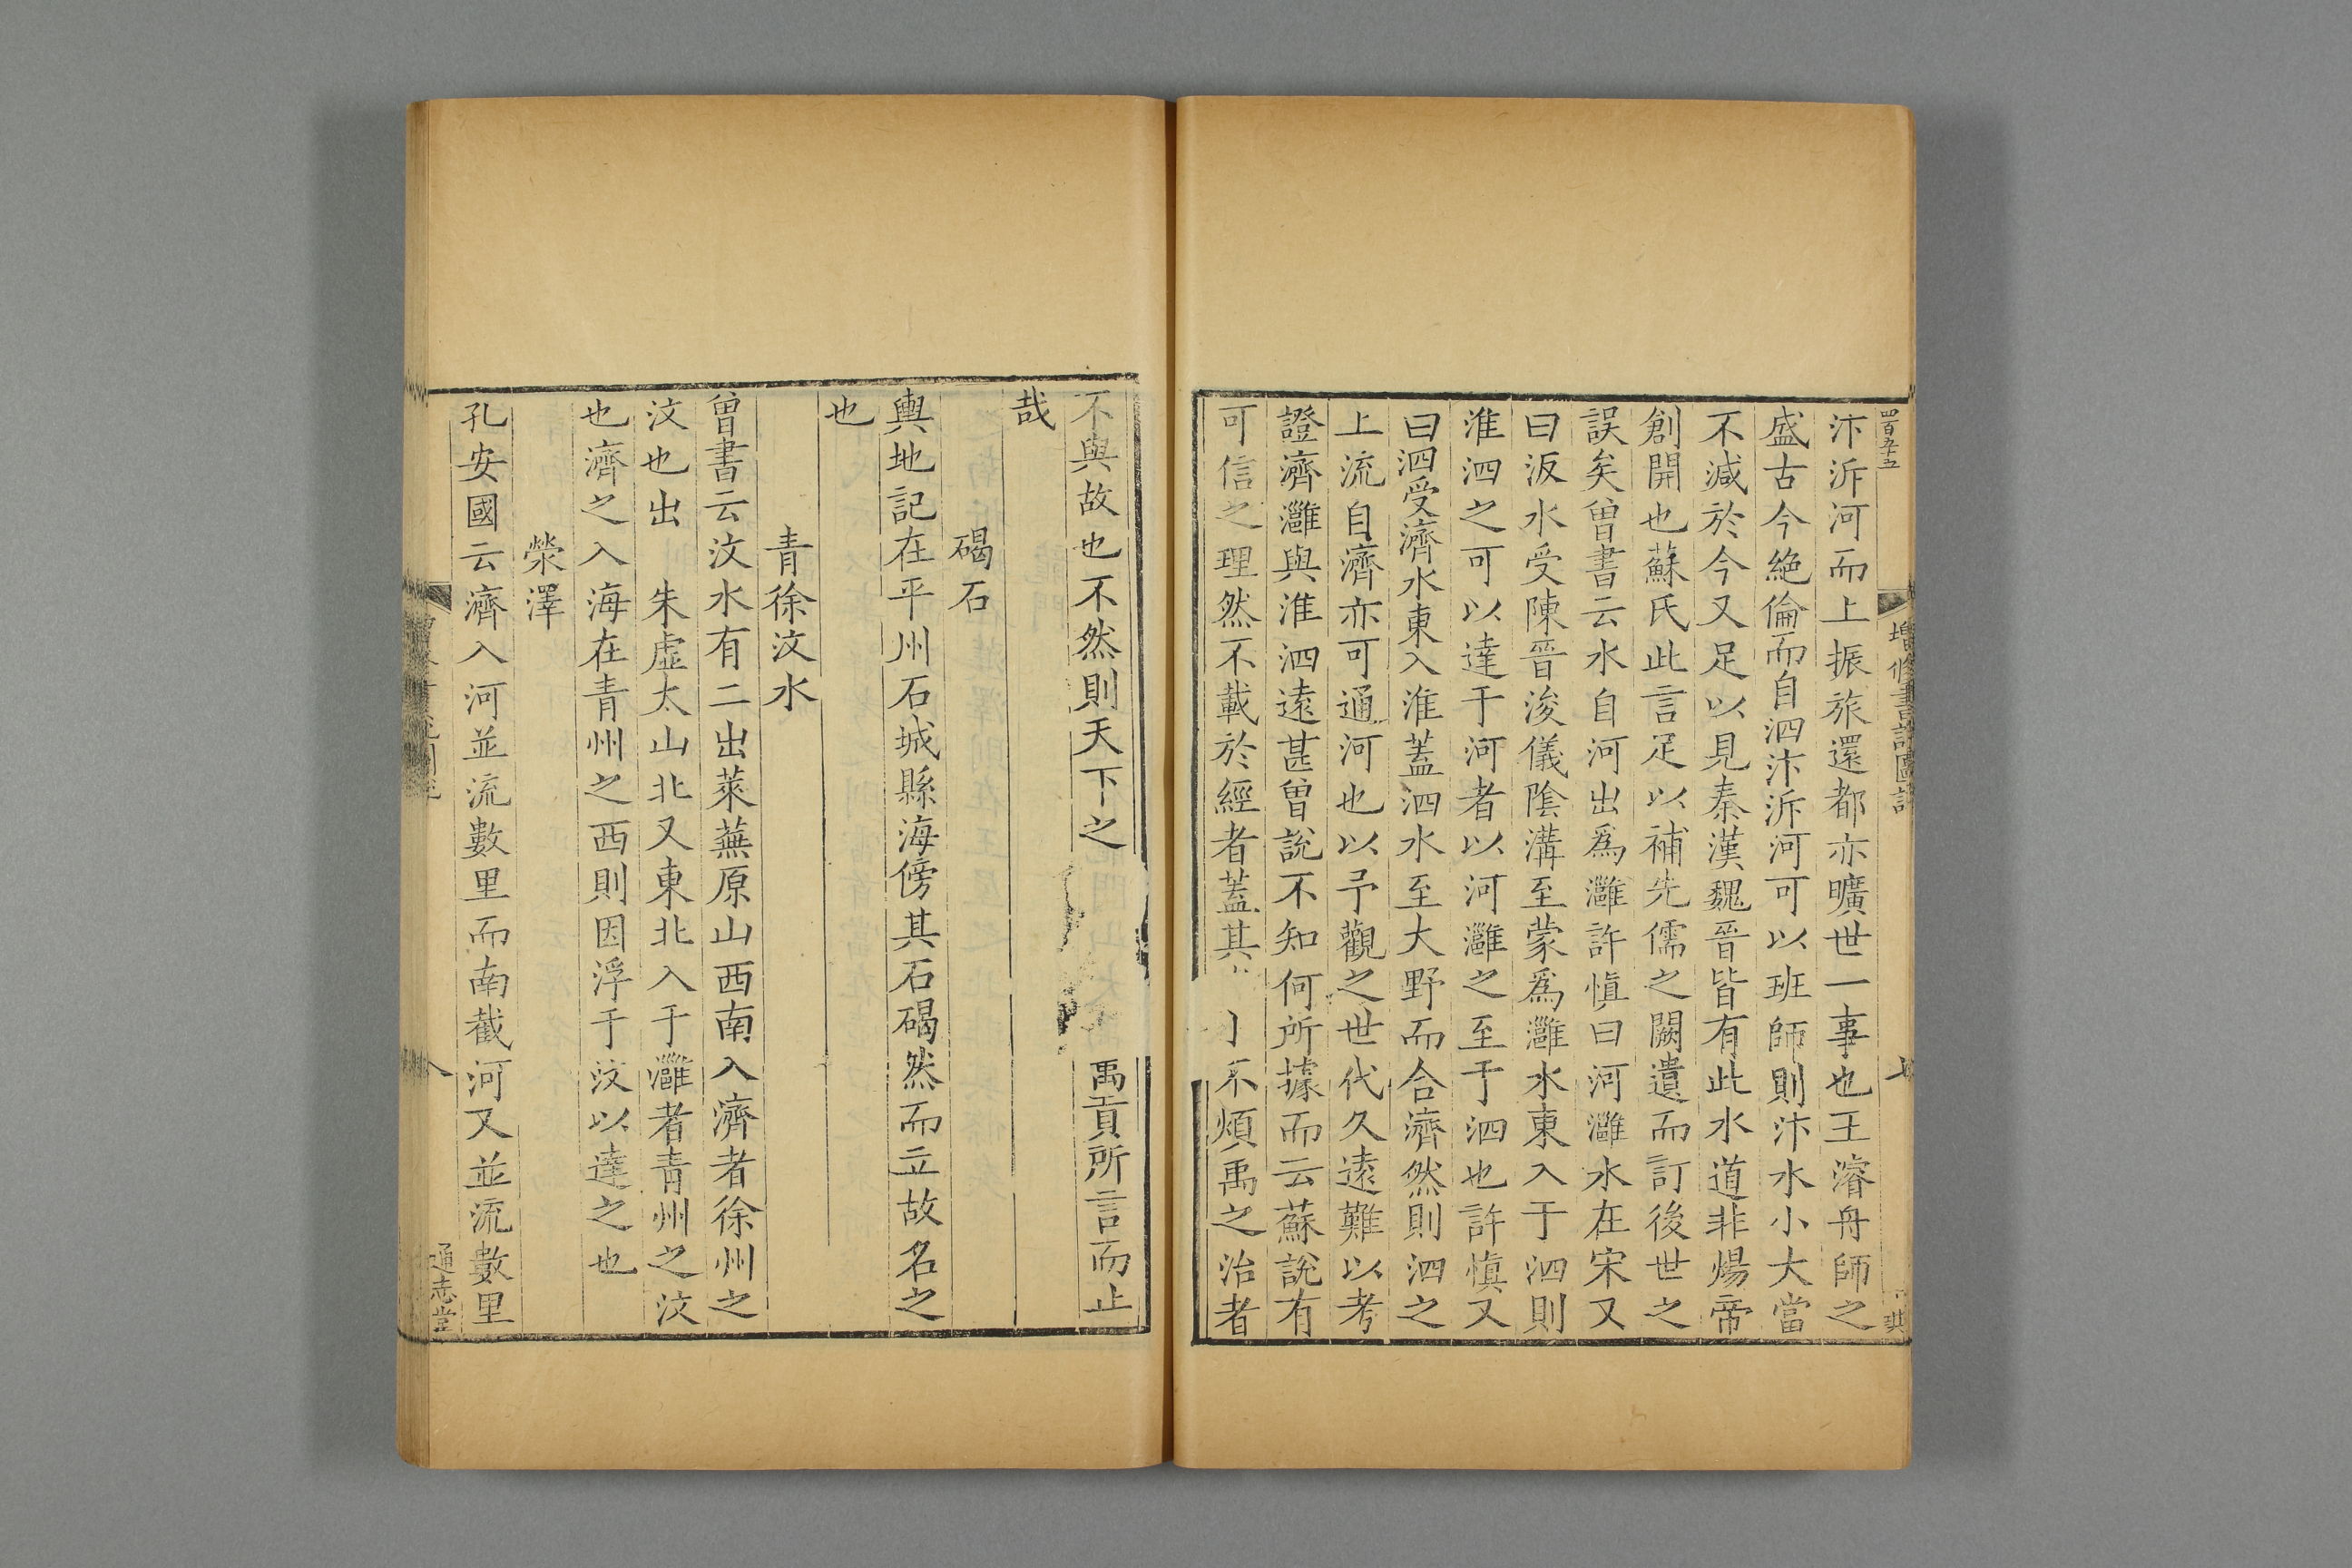 四百五十五
增修書說圖說
七
汴泝河而上振旅還都亦曠世一事也王濬舟師之
盛古今絕倫而自泗汴泝河可以班師則汴水小大當
不減於今又足以見秦漢魏晉皆有此水道非煬帝
創開也蘇氏此言足以補先儒之闕遺而訂後世之
誤矣曾書云水自河出爲灉許慎曰河灉水在宋又
曰汳水受陳晉浚儀陰溝至蒙爲灉水東入于泗則
淮泗之可以達于河者以河灉之至于泗也許慎又
曰泗受濟水東入淮蓋泗水至大野而合濟然則泗之
上流自濟亦可通河也以予觀之世代久遠難以考
證濟灉與淮泗遠甚曾說不知何所據而云蘇說有
可信之理然不載於經者蓋其 不煩禹之治者
不與故也不然則天下之 禹貢所言而止
哉
碣石
輿地記在平州石城縣海傍其石碣然而立故名之
也
青徐汶水
曾書云汶水有二出萊蕪原山西南入濟者徐州之
汶也出 朱虛太山北又東北入于灉者青州之汶
也濟之入海在青州之西則因浮于汶以達之也
滎澤
孔安國云濟入河並流數里而南截河又並流數里
八
通志堂